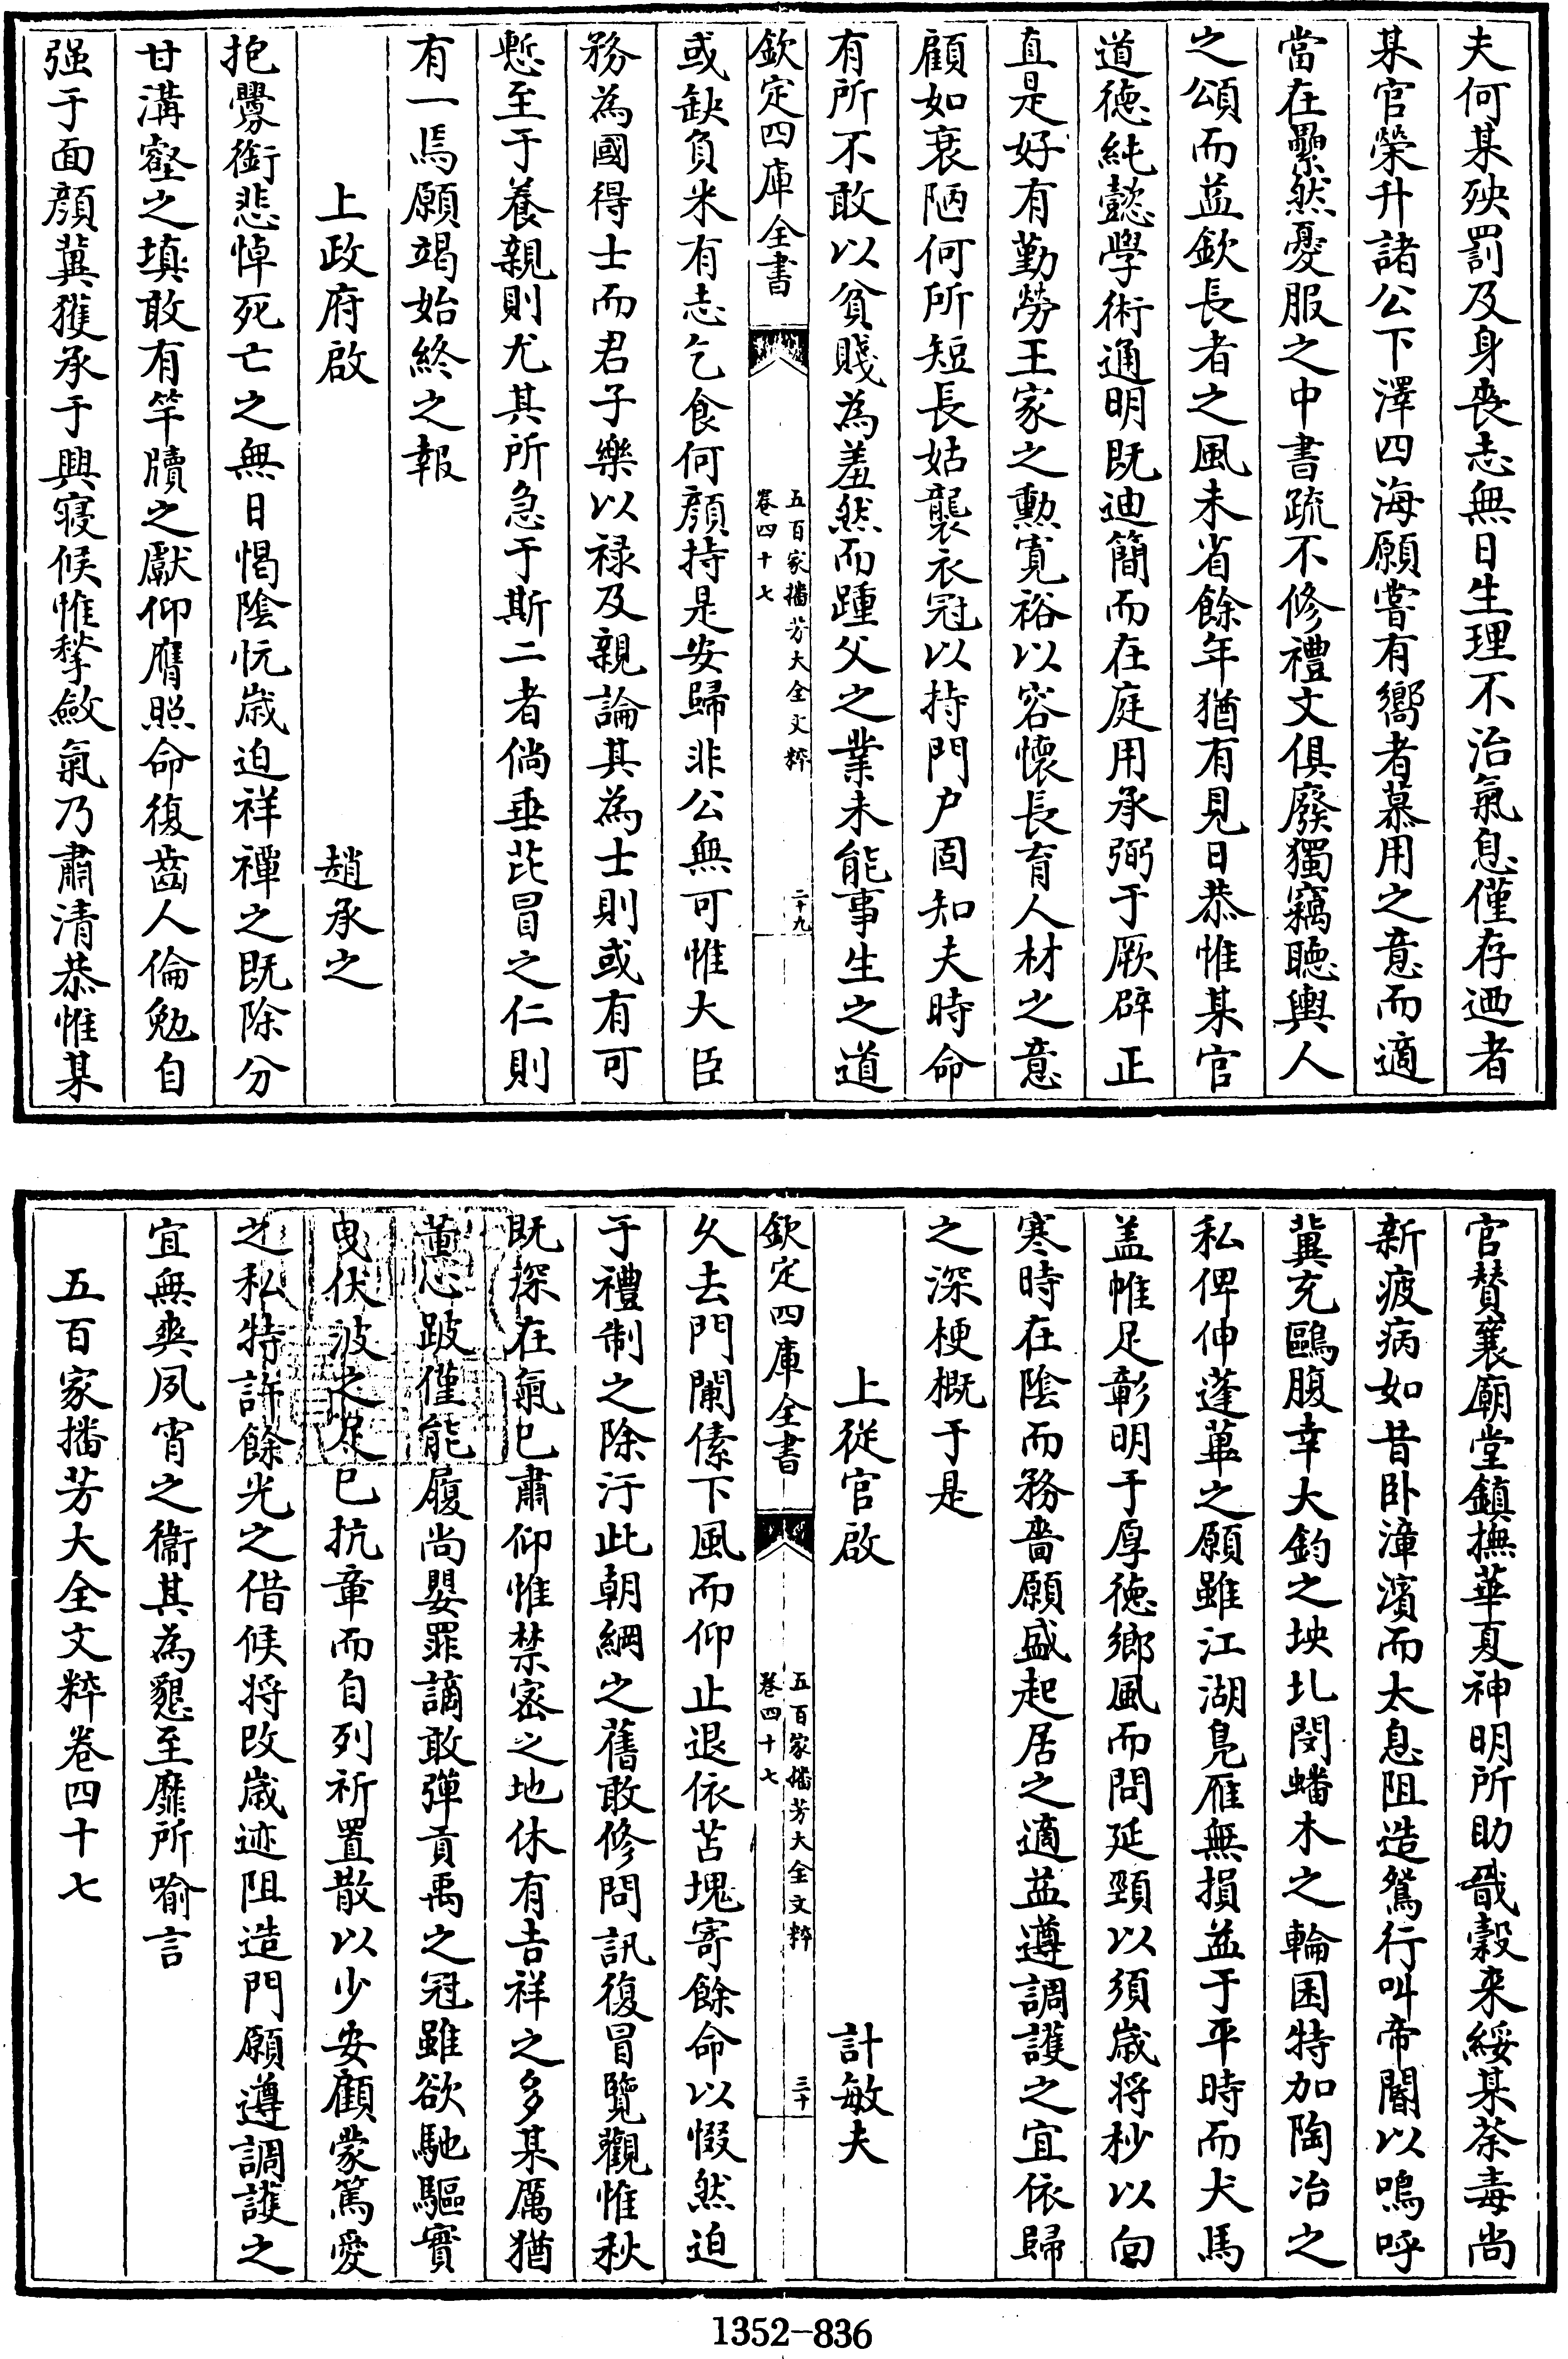 夫何某殃罰及身喪志無日生理不治氣息僅存迺者
某官榮升諸公下澤四海願嘗有嚮者慕用之意而適
當在纍然憂服之中書疏不修禮文俱廢獨竊聽輿人
之頌而益欽長者之風未省餘年猶有見日恭惟某官
道德純懿學術通明既迪簡而在庭用承弼于厥辟正
直是好有勤勞王家之勲寛裕以容懷長育人材之意
顧如衰陋何所短長姑襲衣冠以持門户固知夫時命
有所不敢以貧賤為羞然而踵父之業未能事生之道
欽定四庫全書
五百家播芳大全文粹
卷四十七
二十九
或缺負米有志乞食何顔持是安歸非公無可惟大臣
務為國得士而君子樂以禄及親論其為士則或有可
慙至于養親則尤其所急于斯二者倘垂芘冒之仁則
有一焉願竭始終之報
上政府啟 趙承之
抱釁銜悲悼死亡之無日愒陰忨歳迫祥禫之既除分
甘溝壑之填敢有竿牘之獻仰膺熙命復齒人倫勉自
强于面顔冀獲承于興寝候惟揫斂氣乃肅清恭惟某
官賛襄廟堂鎮撫華夏神明所助戩穀来綏某荼毒尚
新疲病如昔卧漳濱而太息阻造鴛行叫帝閽以嗚呼
冀充鷗腹幸大鈞之坱圠閔蟠木之輪囷特加陶冶之
私俾伸蓬蓽之願雖江湖鳬雁無損益于平時而犬馬
盖帷足彰明于厚徳鄉風而問延頸以須歳将杪以向
寒時在陰而務嗇願盛起居之適益遵調護之宜依歸
之深梗概于是
上從官啟 計敏夫
欽定四庫全書
五百家播芳大全文粹
卷四十七
三十
乆去門闌傃下風而仰止退依苫塊寄餘命以惙然迫
于禮制之除汙此朝綱之舊敢修問訊復冒覽觀惟秋
既深在氣已肅仰惟禁宻之地休有吉祥之多某厲猶
薫心跛僅能履尚嬰罪謫敢彈貢禹之冠雖欲馳驅實
曳伏波之足已抗章而自列祈置散以少安顧蒙篤愛
之私特許餘光之借候将改歳迹阻造門願遵調護之
宜無爽夙宵之衞其為懇至靡所喻言
五百家播芳大全文粹卷四十七
1352-836